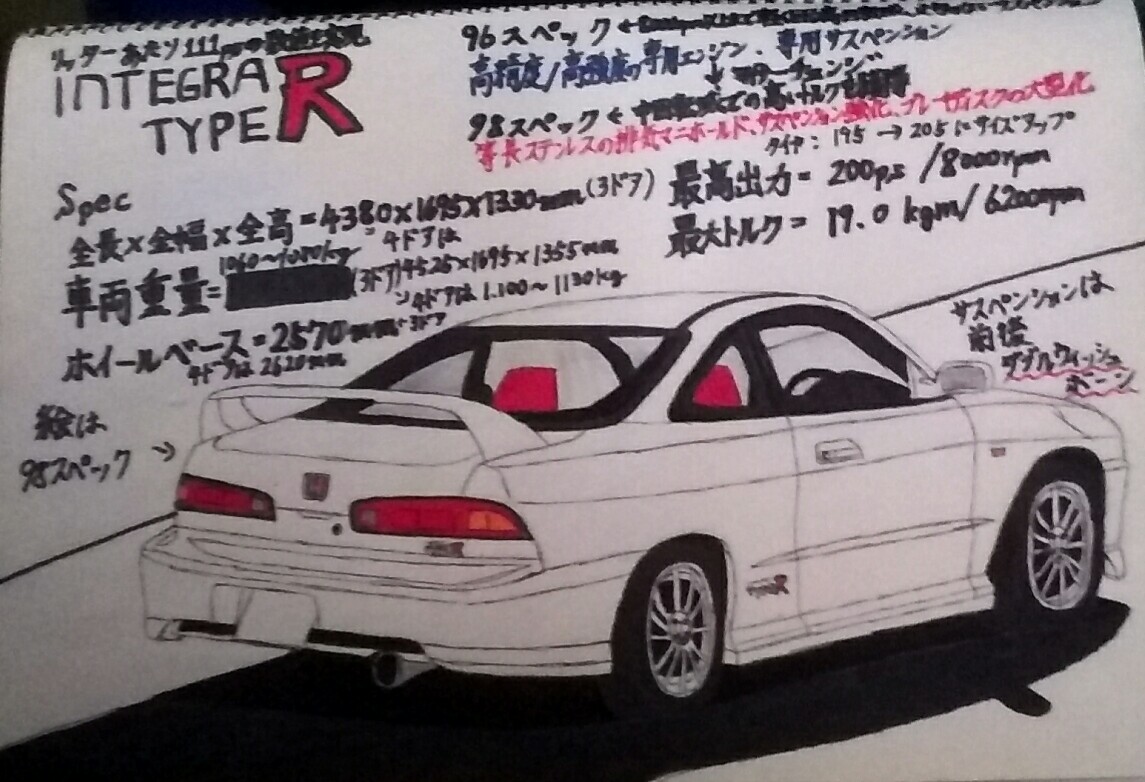 リッターあたり111psの
INTEGRA
TYPE R
96スペック ←
高精度/高強度の専用エンジン、専用サスペンション
↓ マイナーチェンジ
98スペック ← 中回転域での高いトルクを
等長ステンレスの排気マニホールド、サスペンション強化、ブレーキディスクの大型化
タイヤ：195 → 205にサイズアップ
Spec
全長×全幅×全高=4380×1695×1330mm(3ドア)
4ドアは
4525×1695×1355mm
1060~1080kg
車両重量= (3ドア)
4ドアは1.100~1130kg
ホイールベース=2570mm←3ドア
4ドアは2620mm
最高出力= 200ps /8000rpm
最大トルク= 19.0 kgm/6200rpm
サスペンションは
前後
ダブルウィッシュ
ボーン
絵は
98スペック →
TYPE R